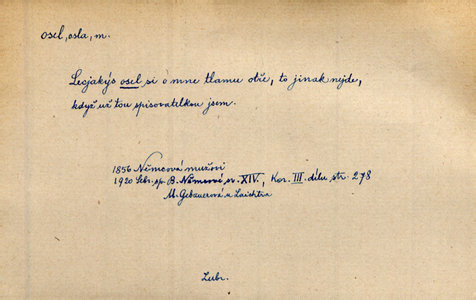 osel, osla, m.
Lecjakýs osel si o mne tlamu otře, to jinak nejde,
když už tou spisovatelkou jsem.
1856 Němcová mužovi
1920 Sebr. sp. B. Němcové sv. XIV, Kor. III. dílu str. 278
M. Gebauerová u Laichtra
Lubr.